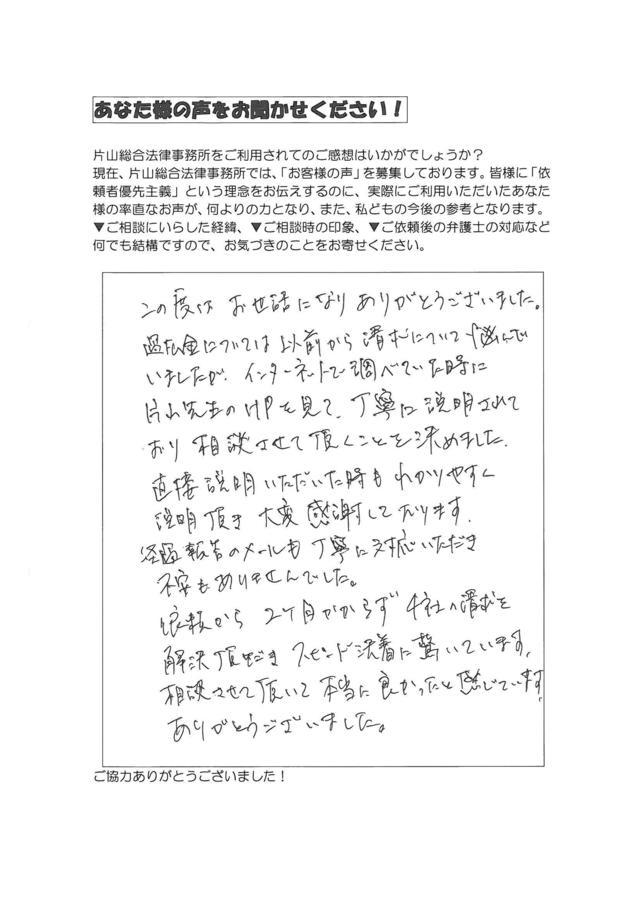 あなた様の声をお聞かせください！
片山総合法律事務所をご利用されてのご感想はいかがでしょうか？
現在、片山総合法律事務所では、「お客様の声」を募集しております。皆様に「依
頼者優先主義」という理念をお伝えするのに、実際にご利用いただいたあなた
様の率直なお声が、何よりの力となり、また、私どもの今後の参考となります。
▼ご相談にいらした経緯、▼ご相談時の印象、▼ご依頼後の弁護士の対応など
何でも結構ですので、お気づきのことをお寄せください。
この度は お世話になり ありがとうございました。
過払金については以前から請求について悩んで
いましたが、インターネットで調べていた時に
片山先生のHPを見て、丁寧に説明されて
おり 相談させて頂くことを決めました。
直接説明いただいた時も わかりやすく
説明頂き 大変感謝しております。
経過報告のメールも 丁寧に対応いただき
不安もありませんでした。
依頼から 2ケ月かからず 4社の請求を
解決頂だき スピード決着に驚いています。
相談させて頂いて 本当に良かったと感じています。
ありがとうございました。
ご協力ありがとうございました！